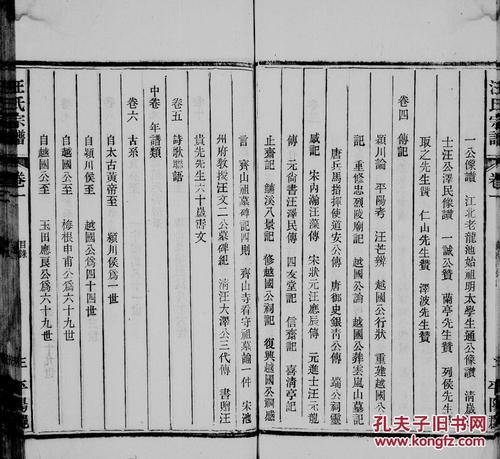 汪氏宗譜 卷一
一公像讚 江北老龍池始祖明太學生通公像讚 清歲
士汪公澤民像讚 一誠公贊 蘭亭先生贊 列侯先生贊
聚之先生贊 仁山先生贊 澤波先生贊
卷四 傳記
潁川論 平陽考 汪芒辨 越國公行狀 重建越國公
記 重修忠烈陵廟記 越國公論 越國公葬雲嵐山墓記
唐兵馬指揮使道安公傳 唐御史銀青公傳 端公祠靈
感記 宋內瀚汪藻傳 宋狀元汪應辰傳 元進士汪元龍
傳 元尚書汪澤民傳 四友堂記 信齋記 喜清亭記
止齋記 龍溪八景記 修越國公祠記 復興越國公祠感
言 齊山祖墓碑記四則 齊山寺看守祖墓議諭一件 宋池
州府敎授汪文二公墓碑紀 淸汪大澤公三代傳 書贈汪
貴先先生六十歲壽文
卷五 詩歌聯語
中卷 年譜類
卷六 古系
自太古黃帝至 潁川侯爲一世
自潁川侯至 越國公爲四十四世
自越國公至 梅根申甫公爲六十九世
自越國公至 玉田應良公爲六十九世
汪氏宗譜 卷一 目錄 三 平陽
孔夫子旧书网
KONGFZ.COM